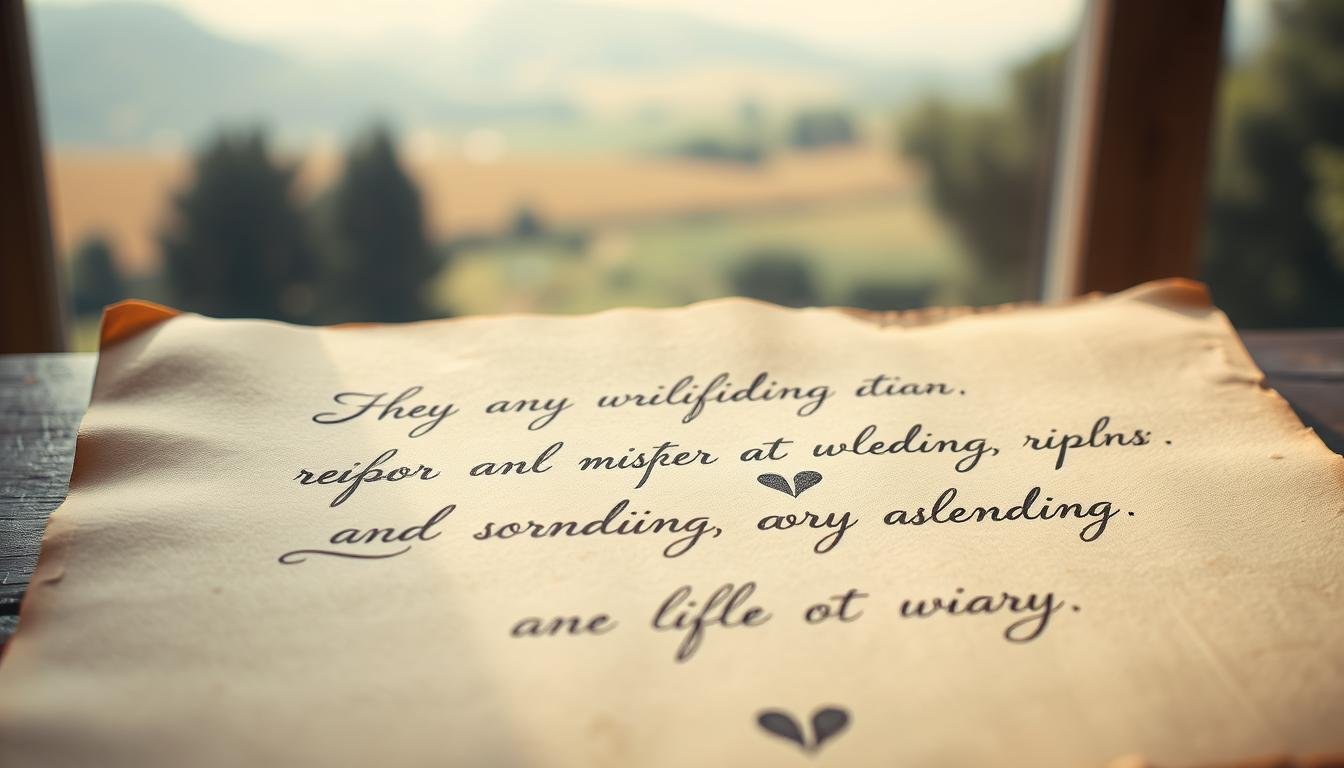 They any wrilifiding itian.
reißor anl misper at wleding, riplns.
and sorndiing, aory aslending.
ane lifle ot wiary.